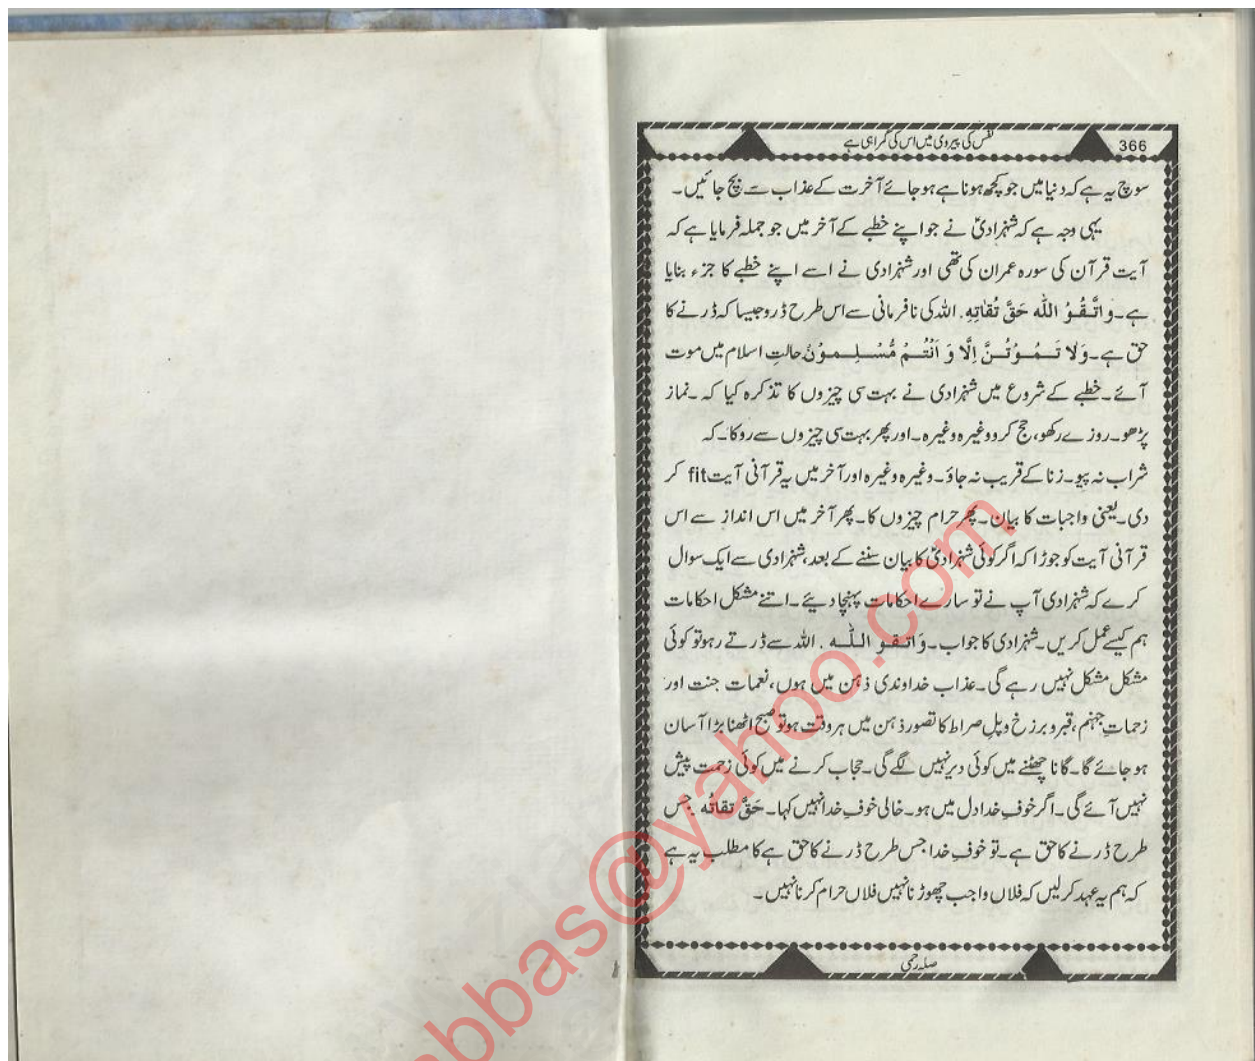 366
نفس کی پیروی میں اس کی گمراہی ہے
سوچ یہ ہے کہ دنیا میں جو کچھ ہونا ہے ہو جائے آخرت کے عذاب سے بچ جائیں۔
یہی وجہ ہے کہ شہزادیؑ نے جو اپنے خطبے کے آخر میں جو جملہ فرمایا ہے کہ
آیت قرآن کی سورہ عمران کی تھی اور شہزادی نے اسے اپنے خطبے کا جزء بنایا
ہے۔ وَاتَّـقُـوُ اللّٰہ حَقَّ تُقاتِہِ۔ اللہ کی نافرمانی سے اس طرح ڈرو جیسا کہ ڈرنے کا
حق ہے۔ وَلا تَـمُـوْتُـنَّ اِلَّا وَ اَنْتُـمْ مُّسْـلِـمـوْنُ حالتِ اسلام میں موت
آئے۔ خطبے کے شروع میں شہزادی نے بہت سی چیزوں کا تذکرہ کیا کہ۔ نماز
پڑھو۔ روزے رکھو، حج کرو وغیرہ وغیرہ۔ اور پھر بہت سی چیزوں سے روکا۔ کہ
شراب نہ پیو۔ زنا کے قریب نہ جاؤ۔ وغیرہ وغیرہ اور آخر میں یہ قرآنی آیت fit کر
دی۔ یعنی واجبات کا بیان۔ پھر حرام چیزوں کا۔ پھر آخر میں اس انداز سے اس
قرآنی آیت کو جوڑا کہ اگر کوئی شہزادیؑ کا بیان سننے کے بعد، شہزادی سے ایک سوال
کرے کہ شہزادی آپ نے تو سارے احکامات پہنچا دیئے۔ اتنے مشکل احکامات
ہم کیسے عمل کریں۔ شہزادی کا جواب۔ وَاتـقـو الـلّٰـہ۔ اللہ سے ڈرتے رہو تو کوئی
مشکل مشکل نہیں رہے گی۔ عذاب خداوندی ذہن میں ہوں، نعمات جنت اور
زحماتِ جہنم، قبر و برزخ و پلِ صراط کا تصور ذہن میں ہر وقت ہو تو صبح اٹھنا بڑا آسان
ہو جائے گا۔ گانا چھٹنے میں کوئی دیر نہیں لگے گی۔ حجاب کرنے میں کوئی زحمت پیش
نہیں آئے گی۔ اگر خوفِ خدا دل میں ہو۔ خالی خوفِ خدا نہیں کہا۔ حَقَّ تقاتُہ۔ جس
طرح ڈرنے کا حق ہے۔ تو خوفِ خدا جس طرح ڈرنے کا حق ہے کا مطلب یہ ہے
کہ ہم یہ عہد کر لیں کہ فلاں واجب چھوڑنا نہیں فلاں حرام کرنا نہیں۔
صلہ رحمی
abbas@yahoo.com